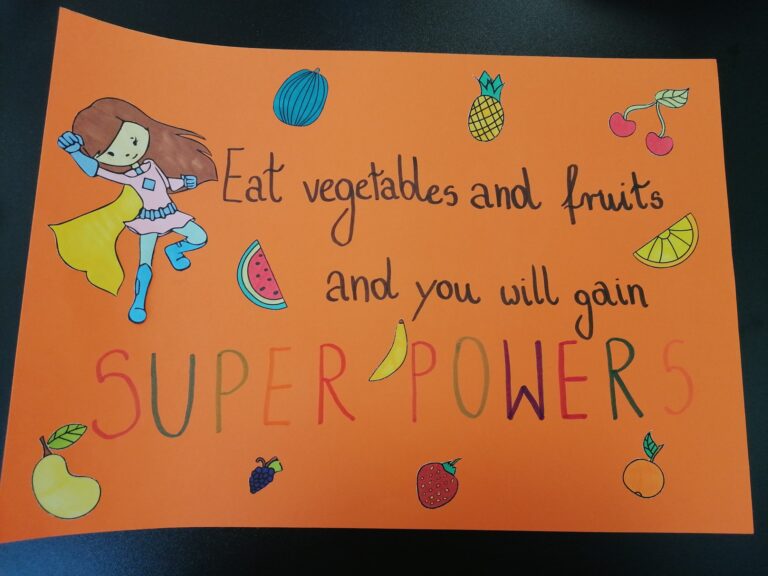 Eat vegetables and fruits
and you will gain
SUPER POWERS